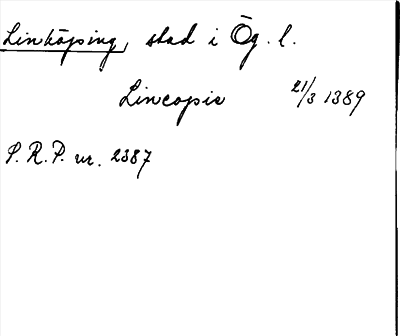 Linköping, stad i Ög. l.
Lincopie 21/3 1389
S.R.P. nr. 2387